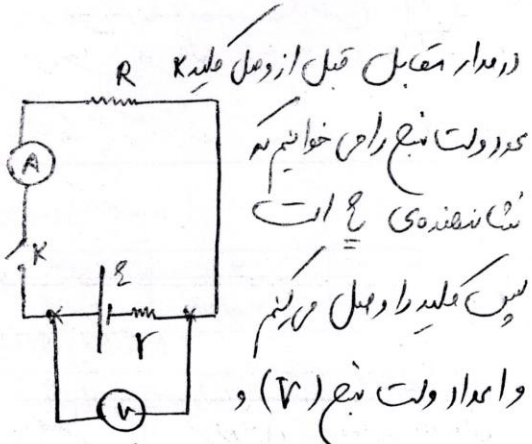 در مدار مقابل قبل از وصل کلید K
عدد ولت سنج را می خوانیم که
نشاندهنده‌ی ε است
سپس کلید را وصل می کنیم
و اعداد ولت سنج (V) و
R
A
K
ε
r
V